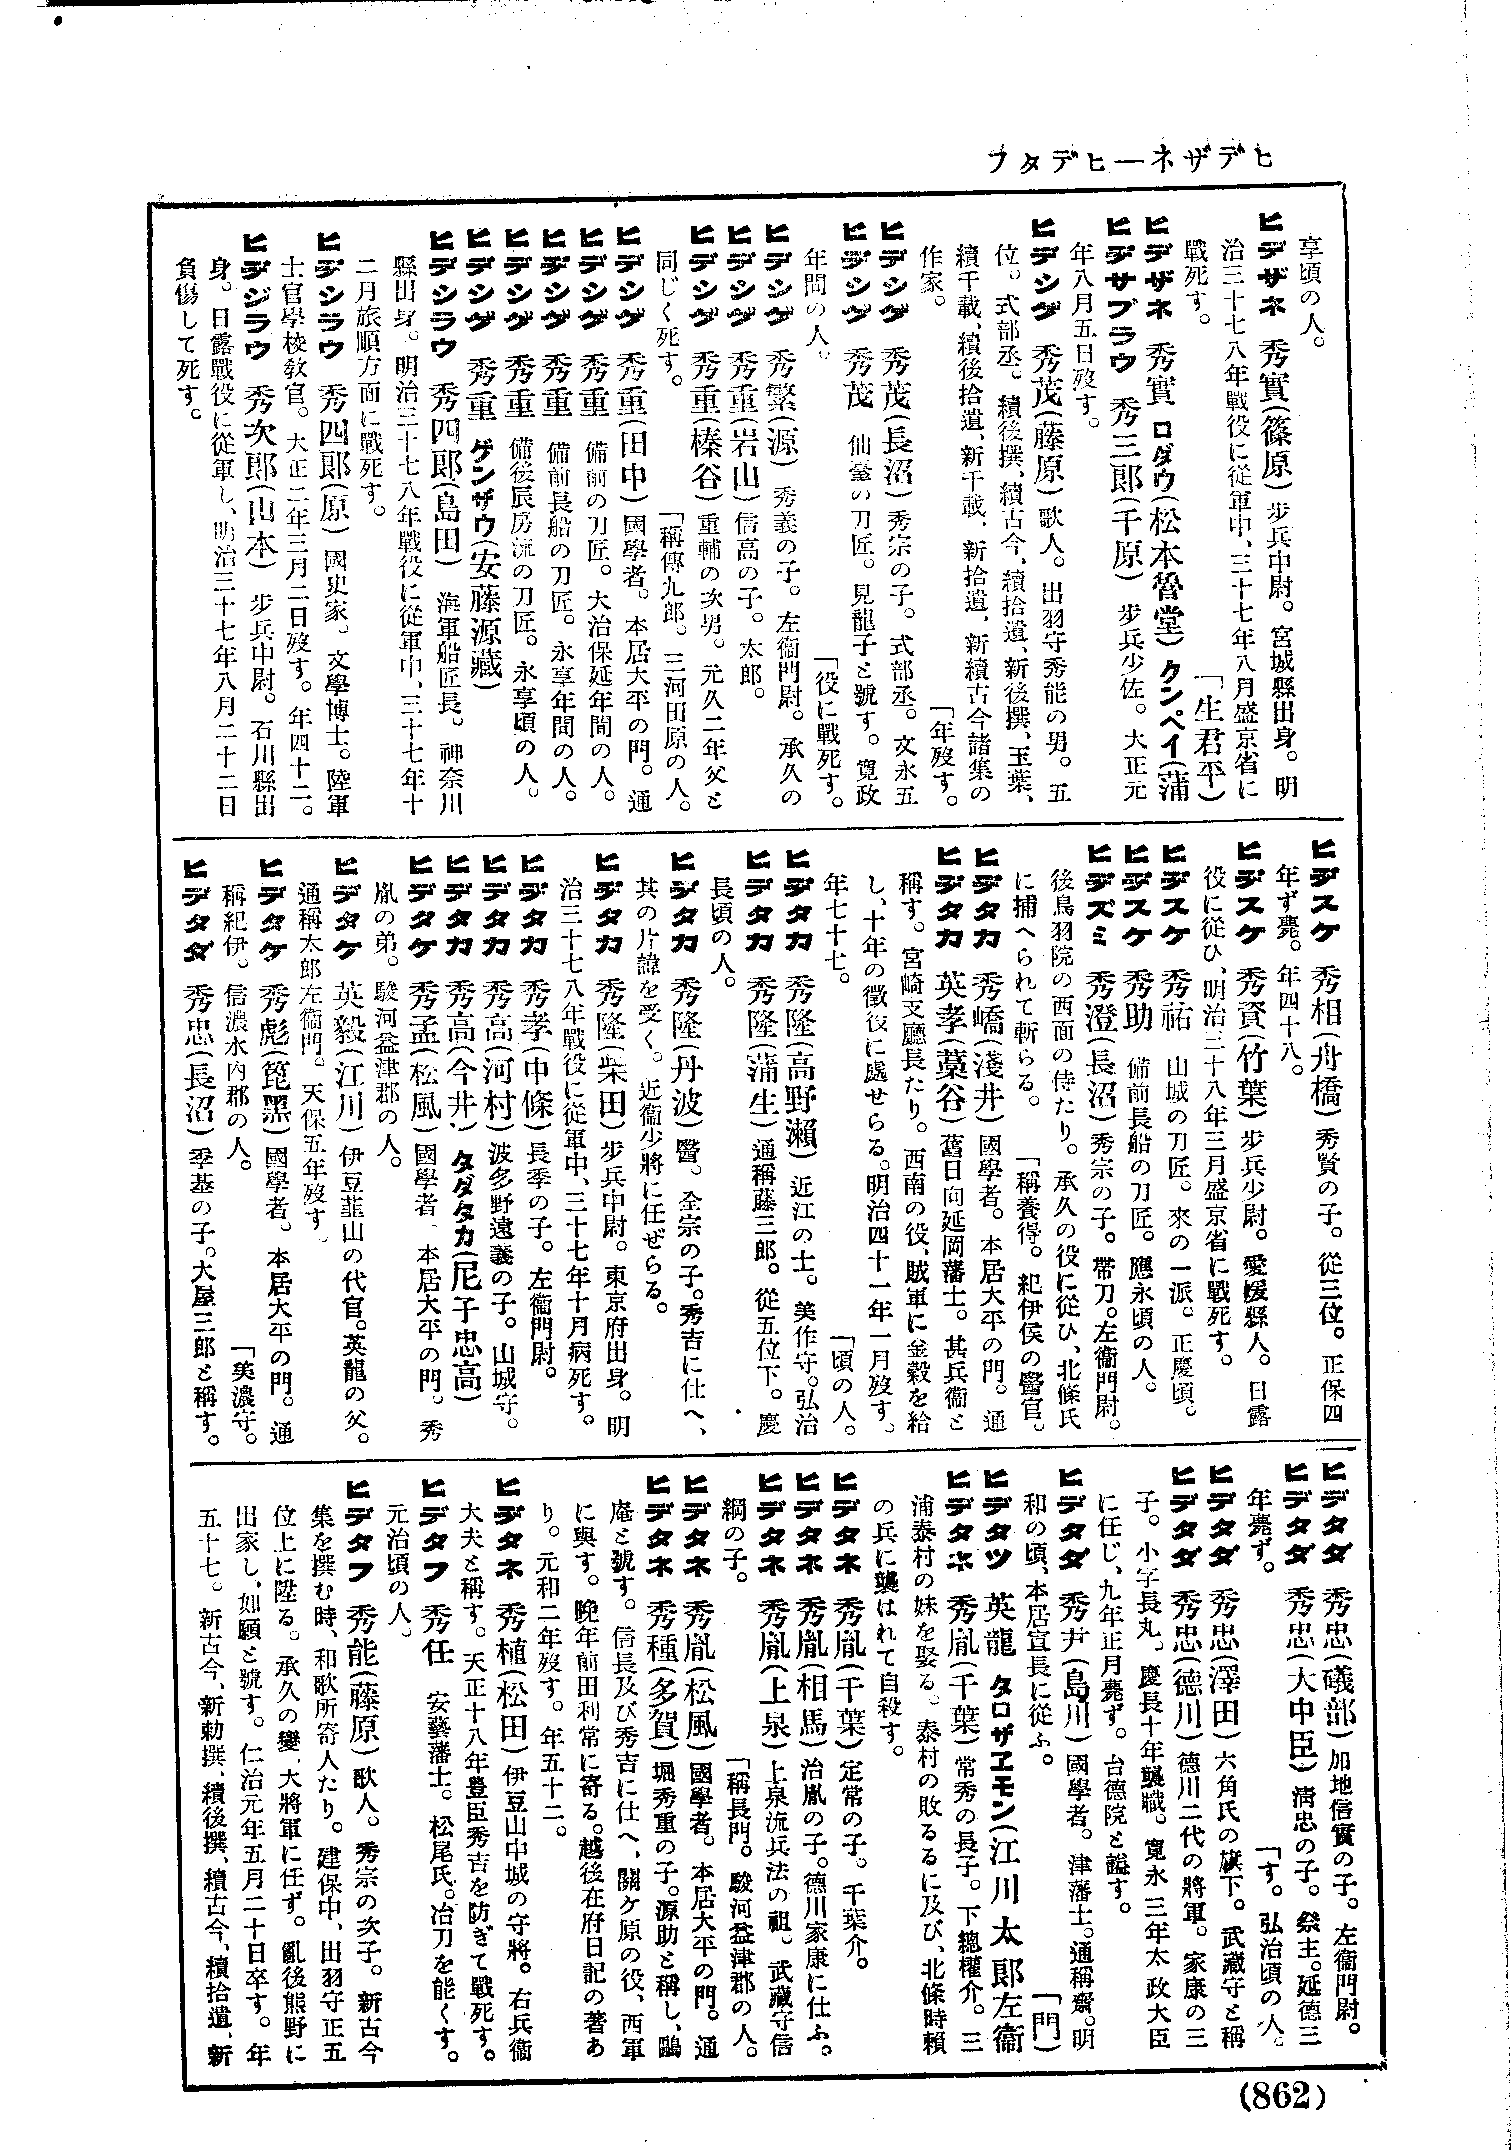 ヒデザネ―ヒデタフ
享頃の人。
ヒデザネ 秀實(篠原) 步兵中尉。宮城縣出身。明
治三十七八年戰役に從軍中、三十七年八月盛京省に
戰死す。 「生君平)
ヒデザネ 秀實 ロダウ(松本魯堂) クンペイ(蒲
ヒデサブラウ 秀三郎(千原) 步兵少佐。大正元
年八月五日歿す。
ヒデシゲ 秀茂(藤原) 歌人。出羽守秀能の男。五
位。式部丞。續後撰、續古今、續拾遺、新後撰、玉葉、
續千載、續後拾遺、新千載、新拾遺、新續古今諸集の
作家。 「年歿す。
ヒデシゲ 秀茂(長沼) 秀宗の子。式部丞。文永五
ヒデシゲ 秀茂 仙臺の刀匠。見龍子と號す。寬政
年間の人。 「役に戰死す。
ヒデシゲ 秀繁(源) 秀義の子。左衞門尉。承久の
ヒデシゲ 秀重(岩山) 信高の子。太郎。
ヒデシゲ 秀重(榛谷) 重輔の次男。元久二年父と
同じく死す。 「稱傳九郎。三河田原の人。
ヒデシゲ 秀重(田中) 國學者。本居大平の門。通
ヒデシゲ 秀重 備前の刀匠。大治保延年間の人。
ヒデシゲ 秀重 備前長船の刀匠。永享年間の人。
ヒデシゲ 秀重 備後辰房流の刀匠。永享頃の人。
ヒデシゲ 秀重 ゲンザウ(安藤源藏)
ヒデシラウ 秀四郎(島田) 海軍船匠長。神奈川
縣出身。明治三十七八年戰役に從軍中、三十七年十
二月旅順方面に戰死す。
ヒデシラウ 秀四郎(原) 國史家。文學博士。陸軍
士官學校敎官。大正二年三月二日歿す。年四十二。
ヒデジラウ 秀次郎(山本) 步兵中尉。石川縣出
身。日露戰役に從軍し、明治三十七年八月二十二日
負傷して死す。
ヒデスケ 秀相(舟橋) 秀賢の子。從三位。正保四
年ず薨。年四十八。
ヒデスケ 秀資(竹葉) 步兵少尉。愛媛縣人。日露
役に從ひ、明治三十八年三月盛京省に戰死す。
ヒデスケ 秀祐 山城の刀匠。來の一派。正慶頃。
ヒデスケ 秀助 備前長船の刀匠。應永頃の人。
ヒデズミ 秀澄(長沼) 秀宗の子。帶刀。左衞門尉。
後鳥羽院の西面の侍たり。承久の役に從ひ、北條氏
に捕へられて斬らる。 「稱養得。紀伊侯の醫官。
ヒデタカ 秀嶠(淺井) 國學者。本居大平の門。通
ヒデタカ 英孝(藁谷) 舊日向延岡藩士。甚兵衞と
稱す。宮崎支廳長たり。西南の役、賊軍に金穀を給
し、十年の徵役に處せらる。明治四十一年一月歿す。
年七十七。 「頃の人。
ヒデタカ 秀隆(高野瀨) 近江の士。美作守。弘治
ヒデタカ 秀隆(蒲生) 通稱藤三郎。從五位下。慶
長頃の人。
ヒデタカ 秀隆(丹波) 醫。全宗の子。秀吉に仕へ、
其の片諱を受く。近衞少將に任ぜらる。
ヒデタカ 秀隆(柴田) 步兵中尉。東京府出身。明
治三十七八年戰役に從軍中、三十七年十月病死す。
ヒデタカ 秀孝(中條) 長季の子。左衞門尉。
ヒデタカ 秀高(河村) 波多野遠義の子。山城守。
ヒデタカ 秀高(今井) タダタカ(尼子忠高)
ヒデタケ 秀孟(松風) 國學者 本居大平の門。秀
胤の弟。駿河益津郡の人。
ヒデタケ 英毅(江川) 伊豆韮山の代官。英龍の父。
通稱太郎左衞門。天保五年歿す。
ヒデタケ 秀彪(箆黑) 國學者。本居大平の門。通
稱紀伊。信濃水內郡の人。 「美濃守。
ヒデタダ 秀忠(長沼) 季基の子。大屋三郎と稱す。
ヒデタダ 秀忠(礒部) 加地信實の子。左衞門尉。
ヒデタダ 秀忠(大中臣) 淸忠の子。祭主。延德三
年薨ず。 「す。弘治頃の人。
ヒデタダ 秀忠(澤田) 六角氏の旗下。武藏守と稱
ヒデタダ 秀忠(德川) 德川二代の將軍。家康の三
子。小字長丸。慶長十年襲職。寬永三年太政大臣
に任じ、九年正月薨ず。台德院と謚す。
ヒデタダ 秀尹(島川) 國學者。津藩士。通稱齋。明
和の頃、本居宣長に從ふ。 「門)
ヒデタツ 英龍 タロザヱモン(江川太郎左衞
ヒデタネ 秀胤(千葉) 常秀の長子。下總權介。三
浦泰村の妹を娶る。泰村の敗るるに及び、北條時賴
の兵に襲はれて自殺す。
ヒデタネ 秀胤(千葉) 定常の子。千葉介。
ヒデタネ 秀胤(相馬) 治胤の子。德川家康に仕ふ。
ヒデタネ 秀胤(上泉) 上泉流兵法の祖。武藏守信
綱の子。 「稱長門。駿河益津郡の人。
ヒデタネ 秀胤(松風) 國學者。本居大平の門。通
ヒデタネ 秀種(多賀) 堀秀重の子。源助と稱し、鷗
庵と號す。信長及び秀吉に仕へ、關ケ原の役、西軍
に與す。晚年前田利常に寄る。越後在府日記の著あ
り。元和二年歿す。年五十二。
ヒデタネ 秀植(松田) 伊豆山中城の守將。右兵衞
大夫と稱す。天正十八年豊臣秀吉を防ぎて戰死す。
ヒデタフ 秀任 安藝藩士。松尾氏。冶刀を能くす。
元治頃の人。
ヒデタフ 秀能(藤原) 歌人。秀宗の次子。新古今
集を撰む時、和歌所寄人たり。建保中、出羽守正五
位上に陞る。承久の變、大將軍に任ず。亂後熊野に
出家し、如願と號す。仁治元年五月二十日卒す。年
五十七。新古今、新勅撰、續後撰、續古今、續拾遺、新
(862)